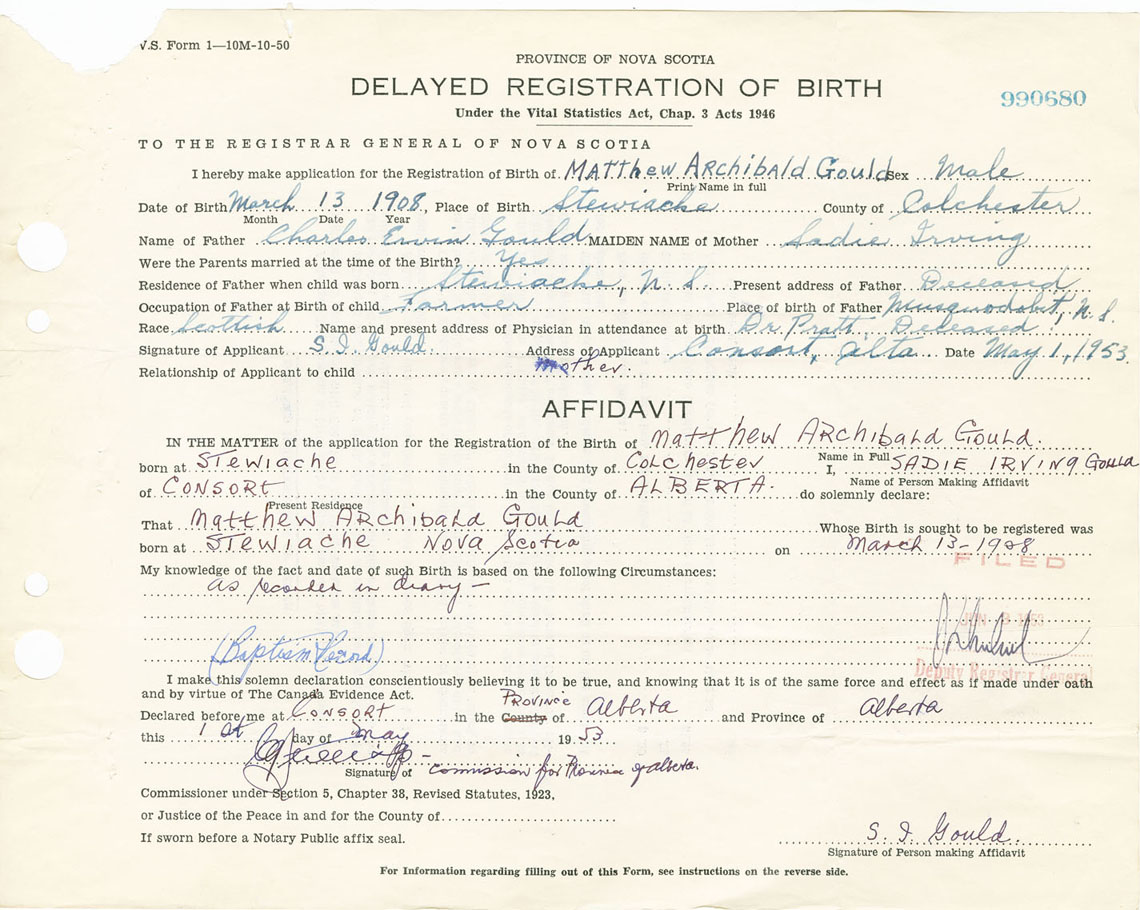 V.S. Form 1—10M-10-50
PROVINCE OF NOVA SCOTIA
DELAYED REGISTRATION OF BIRTH
990680
Under the Vital Statistics Act, Chap. 3 Acts 1946
TO THE REGISTRAR GENERAL OF NOVA SCOTIA
I hereby make application for the Registration of Birth of MATTHEW ARCHIBALD GOULD Sex Male
Print Name in full
Date of Birth March 13 1908, Place of Birth Stewiacke County of Colchester
Month Date Year
Name of Father Charles Erwin Gould MAIDEN NAME of Mother Sadie Irving
Were the Parents married at the time of the Birth? Yes
Residence of Father when child was born Stewiacke, N.S. Present address of Father Deceased
Occupation of Father at Birth of child Farmer Place of birth of Father Musquodobit, N.S.
Race Scottish Name and present address of Physician in attendance at birth Dr Pratt Deceased
Signature of Applicant S. I. Gould Address of Applicant Consort, Alta Date May 1, 1953.
Relationship of Applicant to child mother.
AFFIDAVIT
IN THE MATTER of the application for the Registration of the Birth of Matthew Archibald Gould.
Name in Full
born at Stewiache in the County of Colchester I, SADIE IRVING Gould
Name of Person Making Affidavit
of CONSORT in the County of ALBERTA. do solemnly declare:
Present Residence
That Matthew Archibald Gould Whose Birth is sought to be registered was
born at Stewiache Nova Scotia on March 13-1908
FILED
My knowledge of the fact and date of such Birth is based on the following Circumstances:
as recorded in diary —
1953
(Baptism Record)
Deputy Registrar General
I make this solemn declaration conscientiously believing it to be true, and knowing that it is of the same force and effect as if made under oath
and by virtue of The Canada Evidence Act.
Declared before me at Consort in the County Province of Alberta and Province of Alberta
this 1st day of May 1953
Signature of Commission for Province of Alberta.
Commissioner under Section 5, Chapter 38, Revised Statutes, 1923,
or Justice of the Peace in and for the County of
If sworn before a Notary Public affix seal.
S. I. Gould.
Signature of Person making Affidavit
For Information regarding filling out of this Form, see instructions on the reverse side.